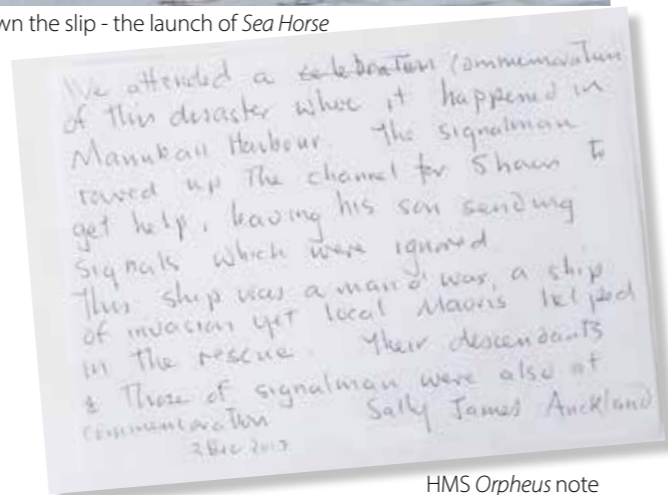 wn the slip - the launch of Sea Horse
We attended a celebration commemoration
of this disaster where it happened in
Manukau Harbour. The signalman
rowed up the channel for 5 hours to
get help, leaving his son sending
signals which were ignored
This ship was a man o' war, a ship
of invasion yet local Maoris helped
in the rescue. Their descendants
& those of signalman were also at
commemoration Sally James Auckland
HMS Orpheus note